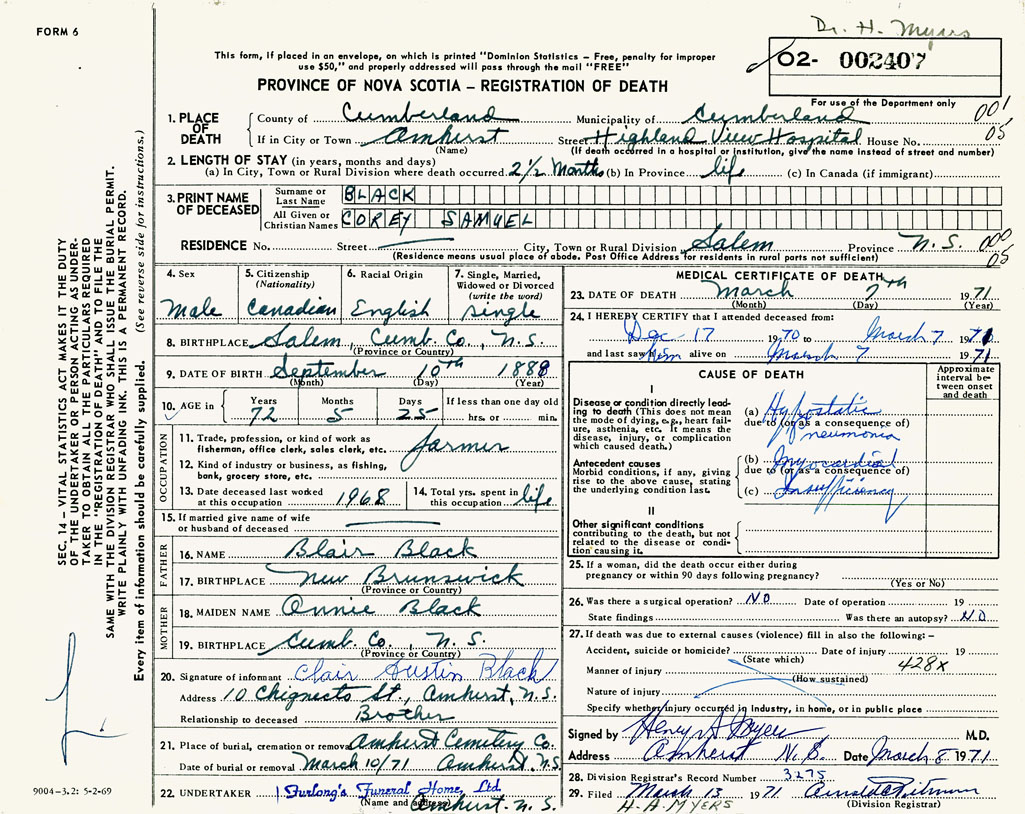 FORM 6
Dr. H. Myers
This form, if placed in an envelope, on which is printed "Dominion Statistics – Free, penalty for improper
use $50," and properly addressed will pass through the mail "FREE"
02- 002407
PROVINCE OF NOVA SCOTIA – REGISTRATION OF DEATH
For use of the Department only
1. PLACE OF DEATH
County of Cumberland Municipality of Cumberland 001
If in City or Town Amherst Street Highland View Hospital House No. 05
(Name) (If death occurred in a hospital or institution, give the name instead of street and number)
2. LENGTH OF STAY (in years, months and days)
(a) In City, Town or Rural Division where death occurred 2½ Months (b) In Province life (c) In Canada (if immigrant)
3. PRINT NAME OF DECEASED
Surname or Last Name BLACK
All Given or Christian Names COREY SAMUEL
RESIDENCE No. Street City, Town or Rural Division Salem Province N.S. 000
(Residence means usual place of abode. Post Office Address for residents in rural parts not sufficient) 05
4. Sex
Male
5. Citizenship
(Nationality)
Canadian
6. Racial Origin
English
7. Single, Married,
Widowed or Divorced
(write the word)
single
8. BIRTHPLACE Salem, Cumb. Co., N.S.
(Province or Country)
9. DATE OF BIRTH September 10th 1888
(Month) (Day) (Year)
10. AGE in
Years Months Days If less than one day old
72 5 25 hrs. or min.
OCCUPATION
11. Trade, profession, or kind of work as
fisherman, office clerk, sales clerk, etc. farmer
12. Kind of industry or business, as fishing,
bank, grocery store, etc.
13. Date deceased last worked
at this occupation 1968
14. Total yrs. spent in
this occupation life
15. If married give name of wife
or husband of deceased
FATHER
16. NAME Blair Black
17. BIRTHPLACE New Brunswick
(Province or Country)
MOTHER
18. MAIDEN NAME Annie Black
19. BIRTHPLACE Cumb. Co., N.S.
(Province or Country)
20. Signature of informant Clair Austin Black
Address 10 Chignecto St., Amherst, N.S.
Relationship to deceased Brother
21. Place of burial, cremation or removal Amherst Cemetery Co.
Date of burial or removal March 10/71 Amherst, N.S.
22. UNDERTAKER Furlong's Funeral Home, Ltd.
(Name and address) Amherst, N.S.
MEDICAL CERTIFICATE OF DEATH
23. DATE OF DEATH March 7th 1971
(Month) (Day) (Year)
24. I HEREBY CERTIFY that I attended deceased from:
Dec-17 1970 to March 7 1971
and last saw him alive on March 7 1971
CAUSE OF DEATH
Approximate
interval be-
tween onset
and death
I
Disease or condition directly lead-
ing to death (This does not mean
the mode of dying, e.g., heart fail-
ure, asthenia, etc. It means the
disease, injury, or complication
which caused death.)
(a) Hypostatic
due to (or as a consequence of)
pneumonia
Antecedent causes
Morbid conditions, if any, giving
rise to the above cause, stating
the underlying condition last.
(b) Myocardial
due to (or as a consequence of)
(c) Insufficiency
II
Other significant conditions
contributing to the death, but not
related to the disease or condi-
tion causing it.
25. If a woman, did the death occur either during
pregnancy or within 90 days following pregnancy?
(Yes or No)
26. Was there a surgical operation? NO Date of operation 19
State findings Was there an autopsy? NO
27. If death was due to external causes (violence) fill in also the following: –
Accident, suicide or homicide? Date of injury 19
(State which) 428X
Manner of injury
(How sustained)
Nature of injury
Specify whether injury occurred in industry, in home, or in public place
Signed by Henry A Myers M.D.
Address Amherst N.S. Date March 8 1971
28. Division Registrar's Record Number 3275
29. Filed March 13 1971
H.A. MYERS (Division Registrar)
SEC. 14 – VITAL STATISTICS ACT MAKES IT THE DUTY
OF THE UNDERTAKER OR PERSON ACTING AS UNDER-
TAKER TO OBTAIN ALL THE PARTICULARS REQUIRED
IN THE "REGISTRATION OF DEATH" AND TO FILE THE
SAME WITH THE DIVISION REGISTRAR WHO SHALL ISSUE THE BURIAL PERMIT.
WRITE PLAINLY WITH UNFADING INK. THIS IS A PERMANENT RECORD.
Every item of information should be carefully supplied. (See reverse side for instructions.)
9004–3.2: 5-2-69